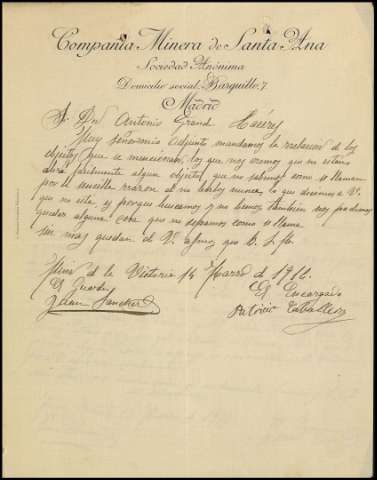 Compañía Minera de Santa Ana
Sociedad Anónima
Domicilio social, Barquillo, 7
Madrid
S. Dn Antonio Grand Cáceres
Muy señor mio adjunto mandamos la relacion de los
objetos que se mencionan, los que nos creemos que no estan
algun objeto, que no sabemos como se llaman
por la sencilla razon de no nunca, lo que decimos a V.
que no esta es porque buscamos y no hemos tambien nos podemos
quedar alguna cosa que no sepamos como se llama
sin mas quedan de V. afmos que B. S. M.
Mina de la Victoria 14 Marzo de 1916.
El Guarda El Encargado
Juan Sanchez Patricio Caballero